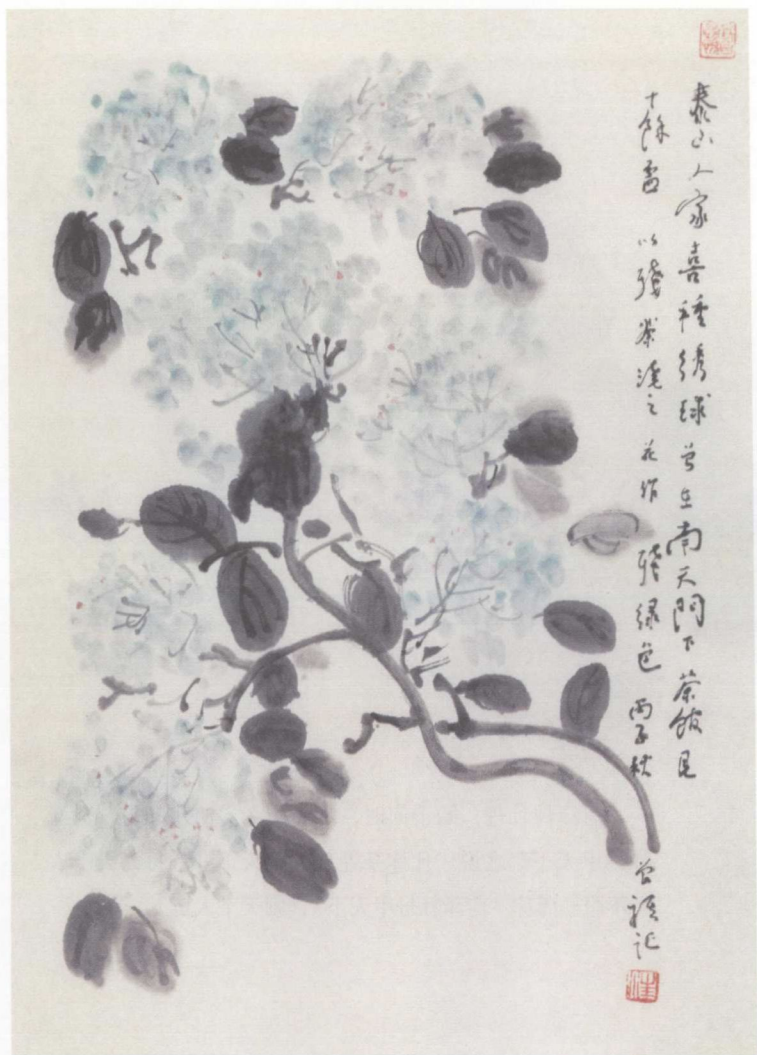 泰山人家喜種绣球曾在南天門下茶館見
十餘盆 以殘茶澆之 花作殘绿色 丙子秋
曾祺記